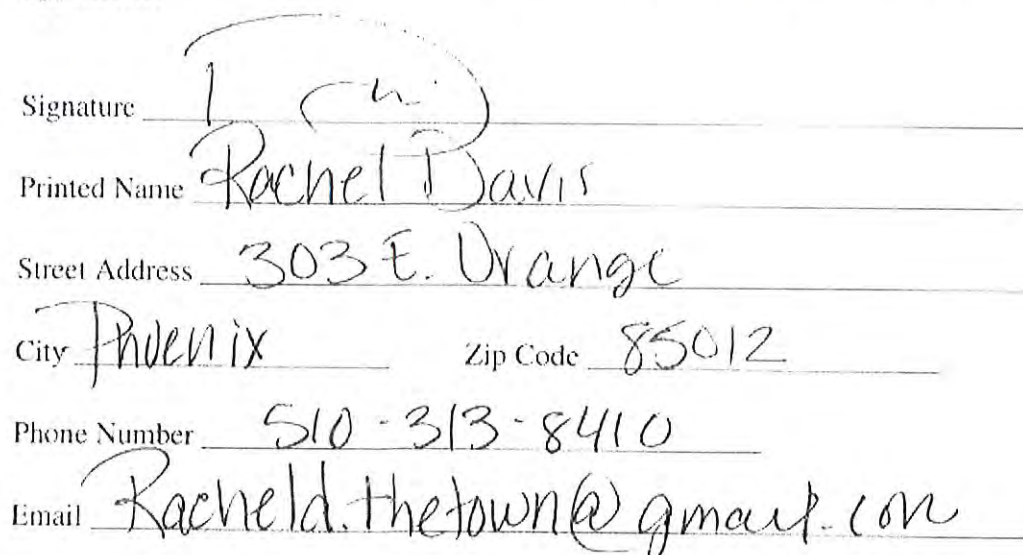 Signature
Printed Name Rachel Davis
Street Address 303 E. Orange
City Phoenix Zip Code 85012
Phone Number 510-313-8410
Email Racheld.thetown@gmail.com